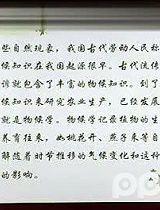 些自然现象，我国古代劳动人民称
候知识在我国起源很早。古代流传
谚就包含了丰富的物候知识。到了
候知识来研究农业生产，已经发展
就是物候学。物候学记录植物的生
养育往来，如桃花开、燕子来等自
解随着时节推移的气候变化和这种
的影响。